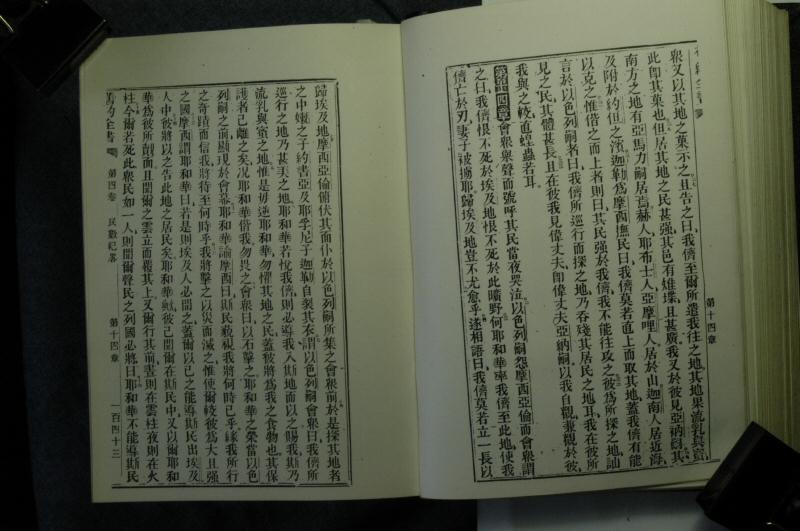 第十四章
眾又以其地之菓示之且告之曰我儕至爾所遣我往之地其地果流乳與蜜
此卽其菓也但居其地之民甚强其邑有雉堞且甚廣我又於彼見亞衲嗣其
南方之地有亞馬力嗣居焉赫人耶布士人亞摩哩人居於山迦南人居近海
及附於約但之濱迦勒爲摩西撫民曰我儕莫若直上而取其地蓋我儕有能
以克之惟偕之而上者則曰其民强於我儕我不能往攻之彼爲所探之地訕
言於以色列嗣者曰我儕所巡行而探之地乃吞殘其居民之地耳我在彼所
見之民其體甚長且在彼我見偉丈夫卽偉丈夫亞衲嗣以我自觀兼觀於彼
我與之較直蝗蟲若耳
第十四章會眾舉聲而號呼其民當夜哭泣以色列嗣怨摩西亞倫而會眾謂
之曰我儕恨不死於埃及地恨不死於此曠野何耶和華率我儕至此地使我
儕亡於刃妻子被擄耶歸埃及地豈不尤愈乎遂相語曰我儕莫若立一長以
歸埃及地摩西亞倫俯伏其面仆於以色列嗣所集之會眾前於是探其地者
之中嫩之子約書亞及耶孚尼子迦勒自裂其衣謂以色列嗣會眾曰我儕所
巡行之地乃甚美之地耶和華若悅我儕則必導我入斯地而以之賜我斯乃
流乳與蜜之地惟是毋逆耶和華勿懼其地之民蓋彼將爲我之食物也其保
護者已離之矣况耶和華偕我勿畏之會眾曰以石擊之耶和華之榮當以色
列嗣之前顯現於會幕耶和華諭摩西曰斯民藐視我將何時已乎緣我所行
之奇蹟而信我將待至何時乎我將擊之以災而滅之惟使爾較彼爲大且强
之國摩西謂耶和華曰若是則埃及人必聞之蓋爾以己之能導斯民出埃及
人中彼將以之告此地之居民矣耶和華歟彼已聞爾在斯民中又以爾耶和
華爲彼所覿面且聞爾之雲立而覆其上又爾行其前晝則在雲柱夜則在火
柱今爾若死此眾民如一人則聞爾聲民之列國必將曰耶和華不能導斯民
舊約全書 第四卷 民數紀畧 第十四章 一百四十三